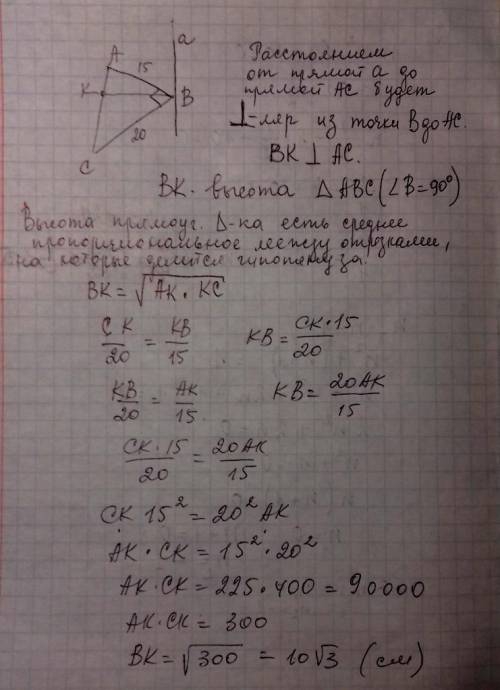 a
A
15
K
B
20
C
Расстоянием
от прямой a до
прямой AC будет
⊥-ляр из точки B до AC.
BK ⊥ AC.
BK - высота △ABC (∠B=90°)
Высота прямоуг. Δ-ка есть среднее
пропорциональное между отрезками,
на которые делится гипотенуза.
BK = √AK · KC
CK/20 = KB/15   KB = CK·15/20
KB/20 = AK/15   KB = 20AK/15
CK·15/20 = 20AK/15
CK 15² = 20² AK
AK · CK = 15² · 20²
AK · CK = 225 · 400 = 90000
AK · CK = 300
BK = √300 = 10√3 (см)